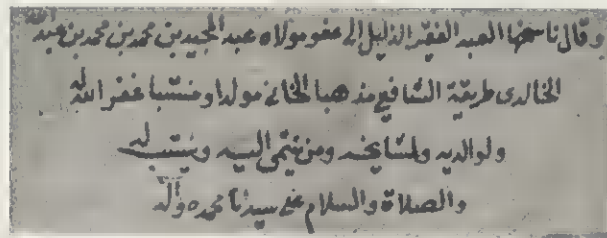 وقال ناسخها العبد الفقير الذليل إلى عفو مولاه عبد المجيد بن محمد بن محمد بن عبد الله
الخالدى طريقة الشافعى مذهبا الخانى مولدا ومنتسبا غفر الله له
ولوالديه ولمشايخه ومن ينتمى اليه وينتسب له
والصلاة والسلام على سيدنا محمد وآله